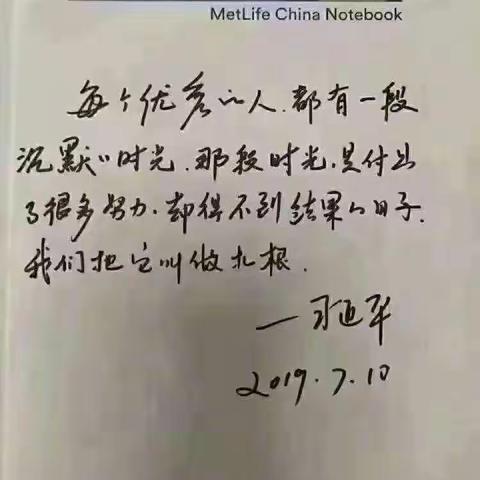 MetLife China Notebook
每个优秀的人.都有一段
沉默的时光.那段时光.是付出
了很多努力.却得不到结果的日子.
我们把它叫做扎根.
—习近平
2019.7.10